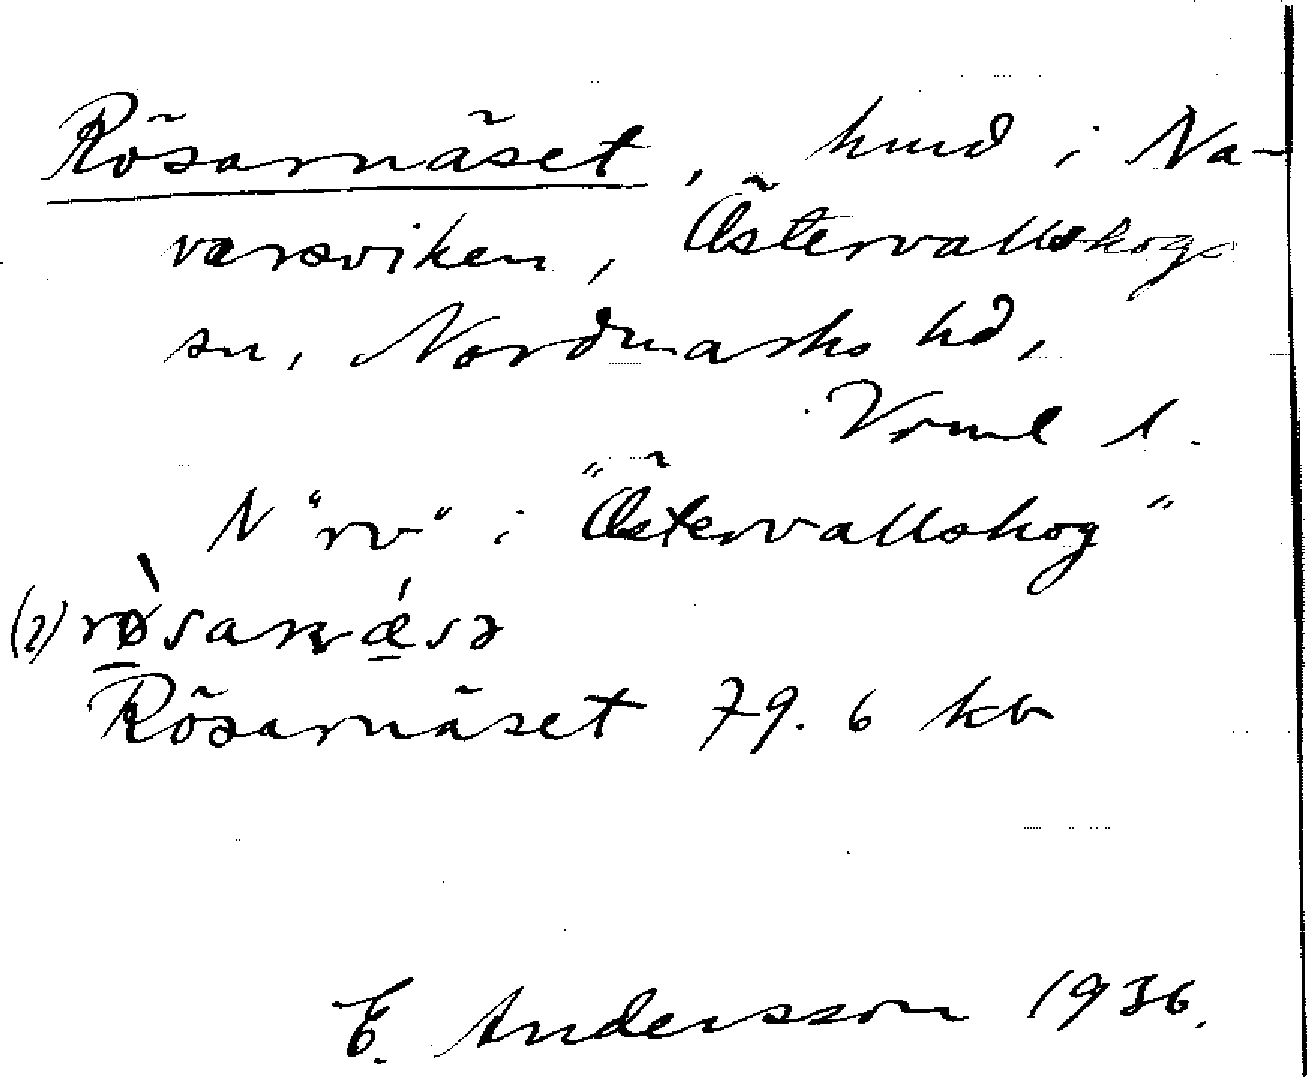 Rösarnäset, hmd i Na-
varsviken, Östervallskogs
sn, Nordmarks hd,
Vrml l.
N "rv" i "Östervallskog"
(2) rø̀sarnǽsə
Rösarnäset 79. 6 kb
E. Andersson 1936.